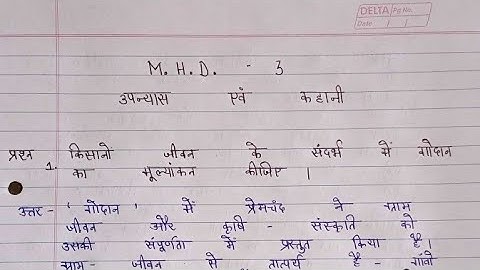 DELTA Pg No.
Date / /
M. H. D. - 3
उपन्यास एवं कहानी
प्रश्न 1. किसानो जीवन के संदर्भ में गोदान
का मूल्यांकन कीजिए ।
उत्तर - 'गोदान' में प्रेमचंद ने ग्राम
जीवन और कृषि - संस्कृति को
उसकी संपूर्णता में प्रस्तुत किया है।
ग्राम - जीवन से तात्पर्य है - गांवो